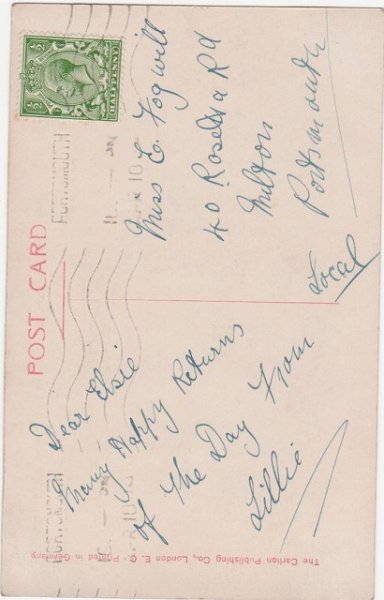 POST CARD
HALFPENNY
½ ½
PORTSMOUTH
Dear Elsie
Many Happy Returns
of The Day From
Lillie
Miss E. Fogwill
40 Rosetta Rd
Milton
Portsmouth
Local
PORTSMOUTH
The Carlton Publishing Co., London E. C. - Printed in Germany